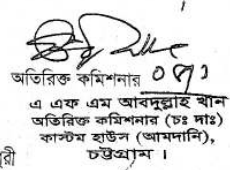 অতিরিক্ত কমিশনার
এ এফ এম আবদুল্লাহ খান
অতিরিক্ত কমিশনার (চঃ দাঃ)
কাস্টম হাউস (আমদানি),
রী চট্টগ্রাম ।